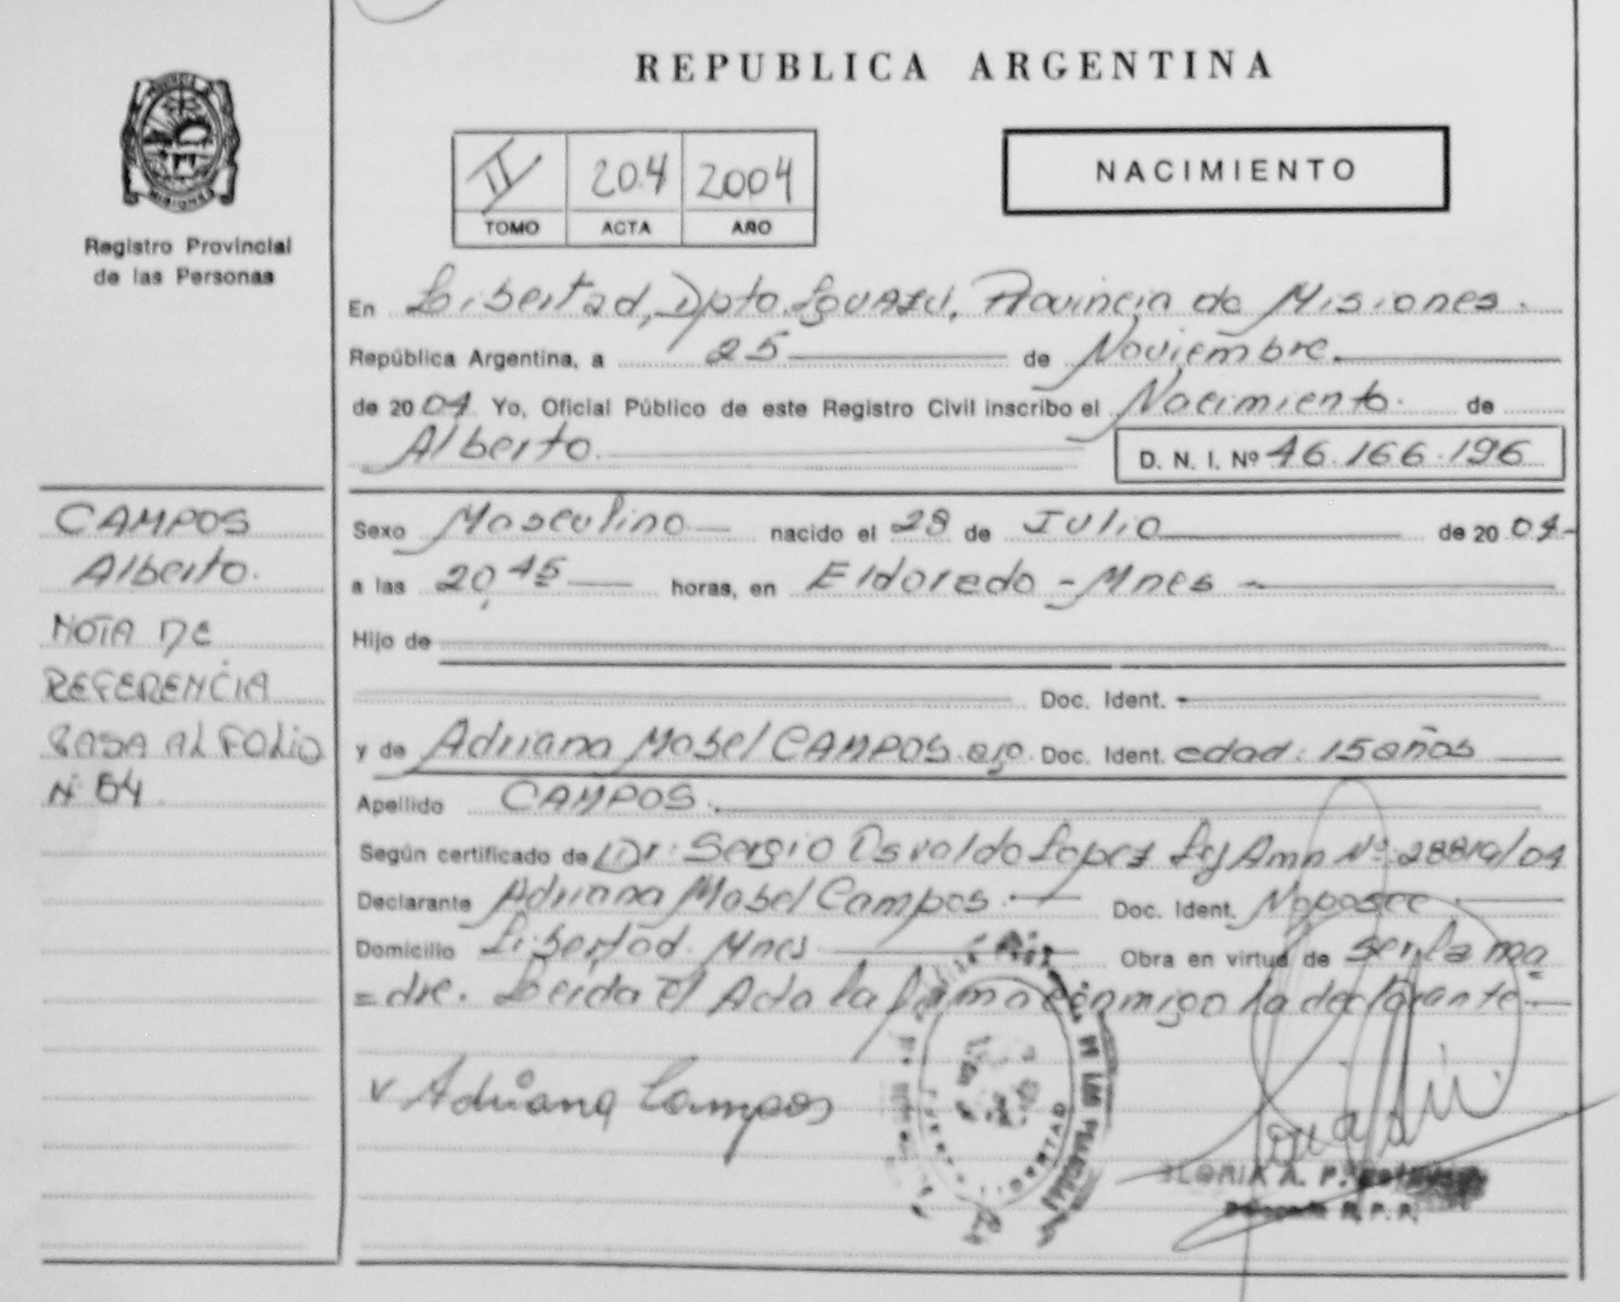 REPUBLICA ARGENTINA
MISIONES
Registro Provincial
de las Personas
II 204 2004
TOMO ACTA AÑO
NACIMIENTO
En Libertad, Dpto. Iguazú, Provincia de Misiones.
República Argentina, a 25 de Noviembre.
de 2004 Yo, Oficial Público de este Registro Civil inscribo el Nacimiento. de
Alberto. D. N. I. Nº 46.166.196
CAMPOS
Alberto.
NOTA DE
REFERENCIA
PASA AL FOLIO
Nº 54
Sexo Masculino nacido el 28 de Julio de 2004-
a las 20,45 horas, en Eldorado - Mnes -
Hijo de
Doc. Ident. -
y de Adriana Mabel CAMPOS. arg. Doc. Ident. edad: 15 años
Apellido CAMPOS.
Según certificado de Dr. Sergio Osvaldo Lopez Nº
Declarante Adriana Mabel Campos. Doc. Ident. No posee
Domicilio Libertad. Mnes Obra en virtud de ser la ma
= dre. Leida el Acta la firma conmigo la declarante.
Adriana Campos
LIBERTAD
DE LAS PERSONAS
GLORIA A. P.
Delegada R. P. P.